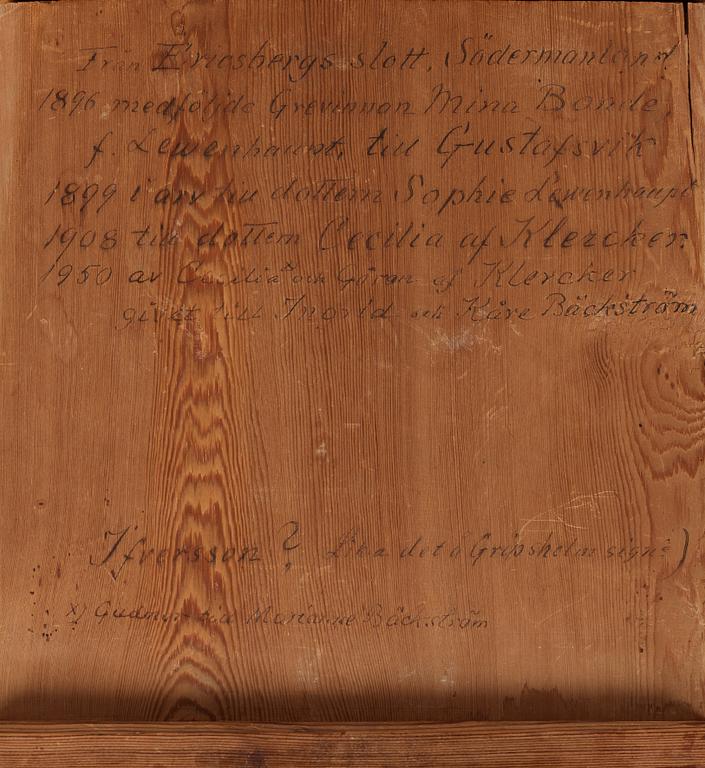 Från Ericsbergs slott, Södermanland
1896 medföljde Grevinnan Mina Bonde,
f. Lewenhaupt, till Gustafsvik
1899 i arv till dottern Sophie Lewenhaupt
1908 till dottern Cecilia af Klercker.
1950 av Cecilia x) och Göran af Klercker
givet till Ingrid och Kåre Bäckström
Ifversson? Lika det å Gripsholm sign:)
x) Gudmor till Marianne Bäckström